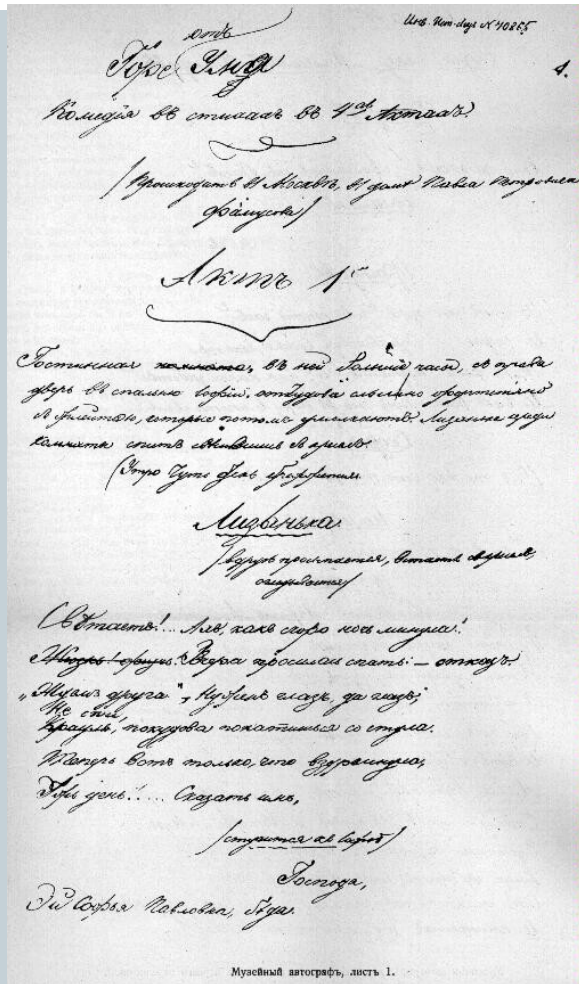 Инв. Ист-докум № 40855
1.
отъ
Горе Ума
Комедія въ стихахъ въ 4хъ Актахъ.
/Происходитъ въ Москвѣ, въ домѣ Павла Петровича
Фамусова/
Актъ 1й
Гостинная комната, въ ней большіе часы, съ права
дверь въ спальню Софьи, откудова слышно фортепіано
съ флейтою, которые потомъ умолкаютъ. Лизанька среди
комнаты спитъ въ креслахъ.
(Утро чуть день брезжится.
Лизанька
/вдругъ просыпается, встаетъ съ креселъ,
оглядывается/
Свѣтаетъ!... Ахъ, какъ скоро ночь минула!
Вчера просилась спать: – отказъ.
„Ждемъ друга“, Нуженъ глазъ, да глазъ;
Не спи,
покудова покатишься со стула.
Теперь вотъ только, что вздремнула,
Ужъ день!.... Сказать имъ,
/стучится къ Софьѣ/
Господа,
Эй Софья Павловна, бѣда.
Музейный автографъ, листъ 1.